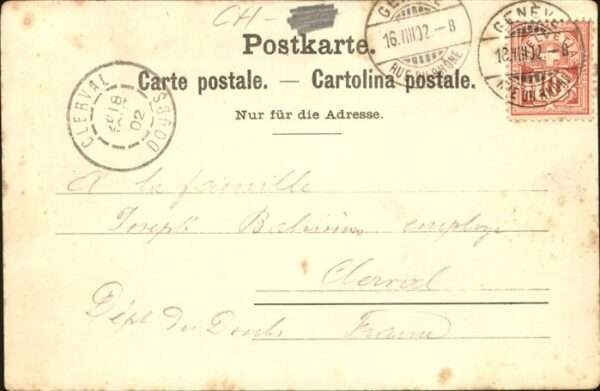 CH-
GENÈVE
16.VIII.02.-8
RUE DU RHONE
GENÈVE
18.VIII.02.-8
RUE DU RHONE
Postkarte.
Carte postale. — Cartolina postale.
Nur für die Adresse.
CLERVAL
18
02
DOUBS
A la famille
Joseph employé
Clerval
Dépt du Doubs France